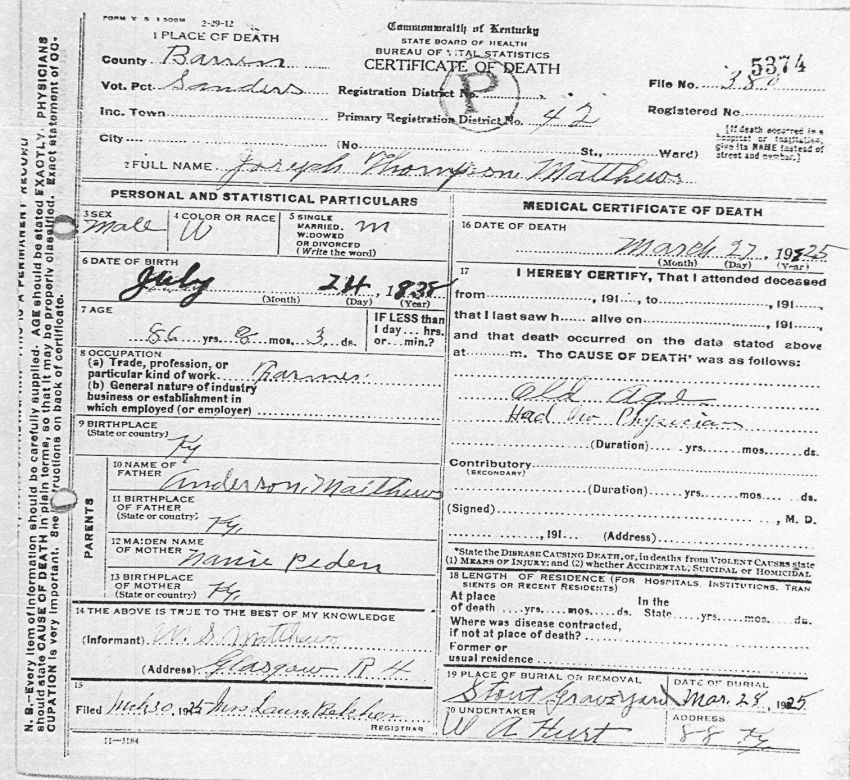 FORM V. S. 1 500M 2-29-12
Commonwealth of Kentucky
STATE BOARD OF HEALTH
BUREAU OF VITAL STATISTICS
CERTIFICATE OF DEATH
1 PLACE OF DEATH
County Barren
Vot. Pct. Sanders
Inc. Town
City
Registration District No.
P
Primary Registration District No. 42
(No. St., Ward)
5374
File No. 380
Registered No.
[If death occurred in a hospital or institution, give its NAME instead of street and number.]
2 FULL NAME Joseph Thompson Matthews
PERSONAL AND STATISTICAL PARTICULARS
3 SEX
Male
4 COLOR OR RACE
W
5 SINGLE MARRIED, WIDOWED OR DIVORCED (Write the word)
m
6 DATE OF BIRTH
July 24, 1838
(Month) (Day) (Year)
7 AGE
86 yrs. 8 mos. 3 ds.
IF LESS than 1 day... hrs. or... min.?
8 OCCUPATION
(a) Trade, profession, or particular kind of work Farmer
(b) General nature of industry business or establishment in which employed (or employer)
9 BIRTHPLACE
(State or country)
Ky
PARENTS
10 NAME OF FATHER
Anderson Matthews
11 BIRTHPLACE OF FATHER
(State or country)
Ky.
12 MAIDEN NAME OF MOTHER
Nanie Peden
13 BIRTHPLACE OF MOTHER
(State or country)
Ky.
14 THE ABOVE IS TRUE TO THE BEST OF MY KNOWLEDGE
(Informant) W. S. Matthews
(Address) Glasgow R 4
15
Filed Mch 30, 1925 Mrs Laura Belcher
REGISTRAR
11-3184
MEDICAL CERTIFICATE OF DEATH
16 DATE OF DEATH
March 27, 1925
(Month) (Day) (Year)
17 I HEREBY CERTIFY, That I attended deceased
from , 191 , to , 191
that I last saw h alive on , 191
and that death occurred on the date stated above
at m. The CAUSE OF DEATH* was as follows:
Old Age
Had No Physician
(Duration) yrs. mos. ds.
Contributory
(SECONDARY)
(Duration) yrs. mos. ds.
(Signed) , M. D.
, 191 (Address)
*State the DISEASE CAUSING DEATH, or, in deaths from VIOLENT CAUSES state
(1) MEANS OF INJURY; and (2) whether ACCIDENTAL, SUICIDAL or HOMICIDAL
18 LENGTH OF RESIDENCE (FOR HOSPITALS, INSTITUTIONS, TRAN
SIENTS OR RECENT RESIDENTS)
At place of death yrs. mos. ds. In the State yrs. mos. ds.
Where was disease contracted, if not at place of death?
Former or usual residence
19 PLACE OF BURIAL OR REMOVAL
Stout Graveyard
DATE OF BURIAL
Mar. 28, 1925
20 UNDERTAKER
W A Hurt
ADDRESS
88 Ky
N. B.-Every item of information should be carefully supplied. AGE should be stated EXACTLY. PHYSICIANS
should state CAUSE OF DEATH in plain terms, so that it may be properly classified. Exact statement of OC-
CUPATION is very important. See instructions on back of certificate.